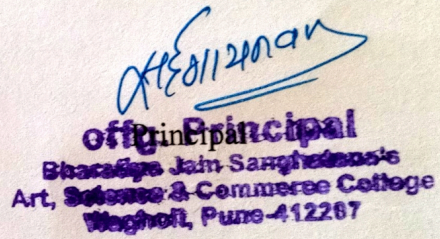 offg. Principal
Principal
Bharatiya Jain Sanghatana's
Art, Science & Commerce College
Wagholi, Pune-412207